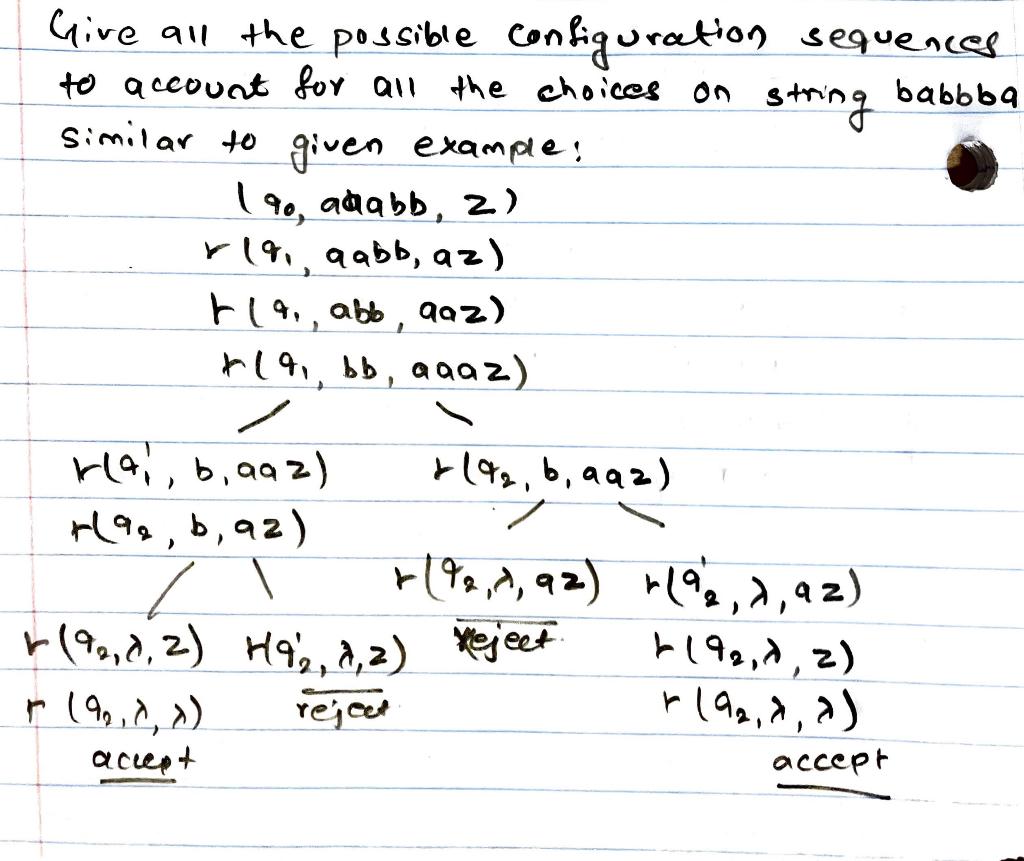 Give all the possible configuration sequences
to account for all the choices on string babbba
similar to given example:
(q₀, aaabb, z)
⊢(q₁, aabb, az)
⊢(q₁, abb, aaz)
⊢(q₁, bb, aaaz)
⊢(q₁', b, aaz) ⊢(q₂, b, aaz)
⊢(q₂, b, az)
⊢(q₂, λ, az) ⊢(q₂', λ, az)
⊢(q₂, λ, z) ⊢(q₂', λ, z) reject ⊢(q₂, λ, z)
⊢(q₂, λ, λ) reject ⊢(q₂, λ, λ)
accept accept